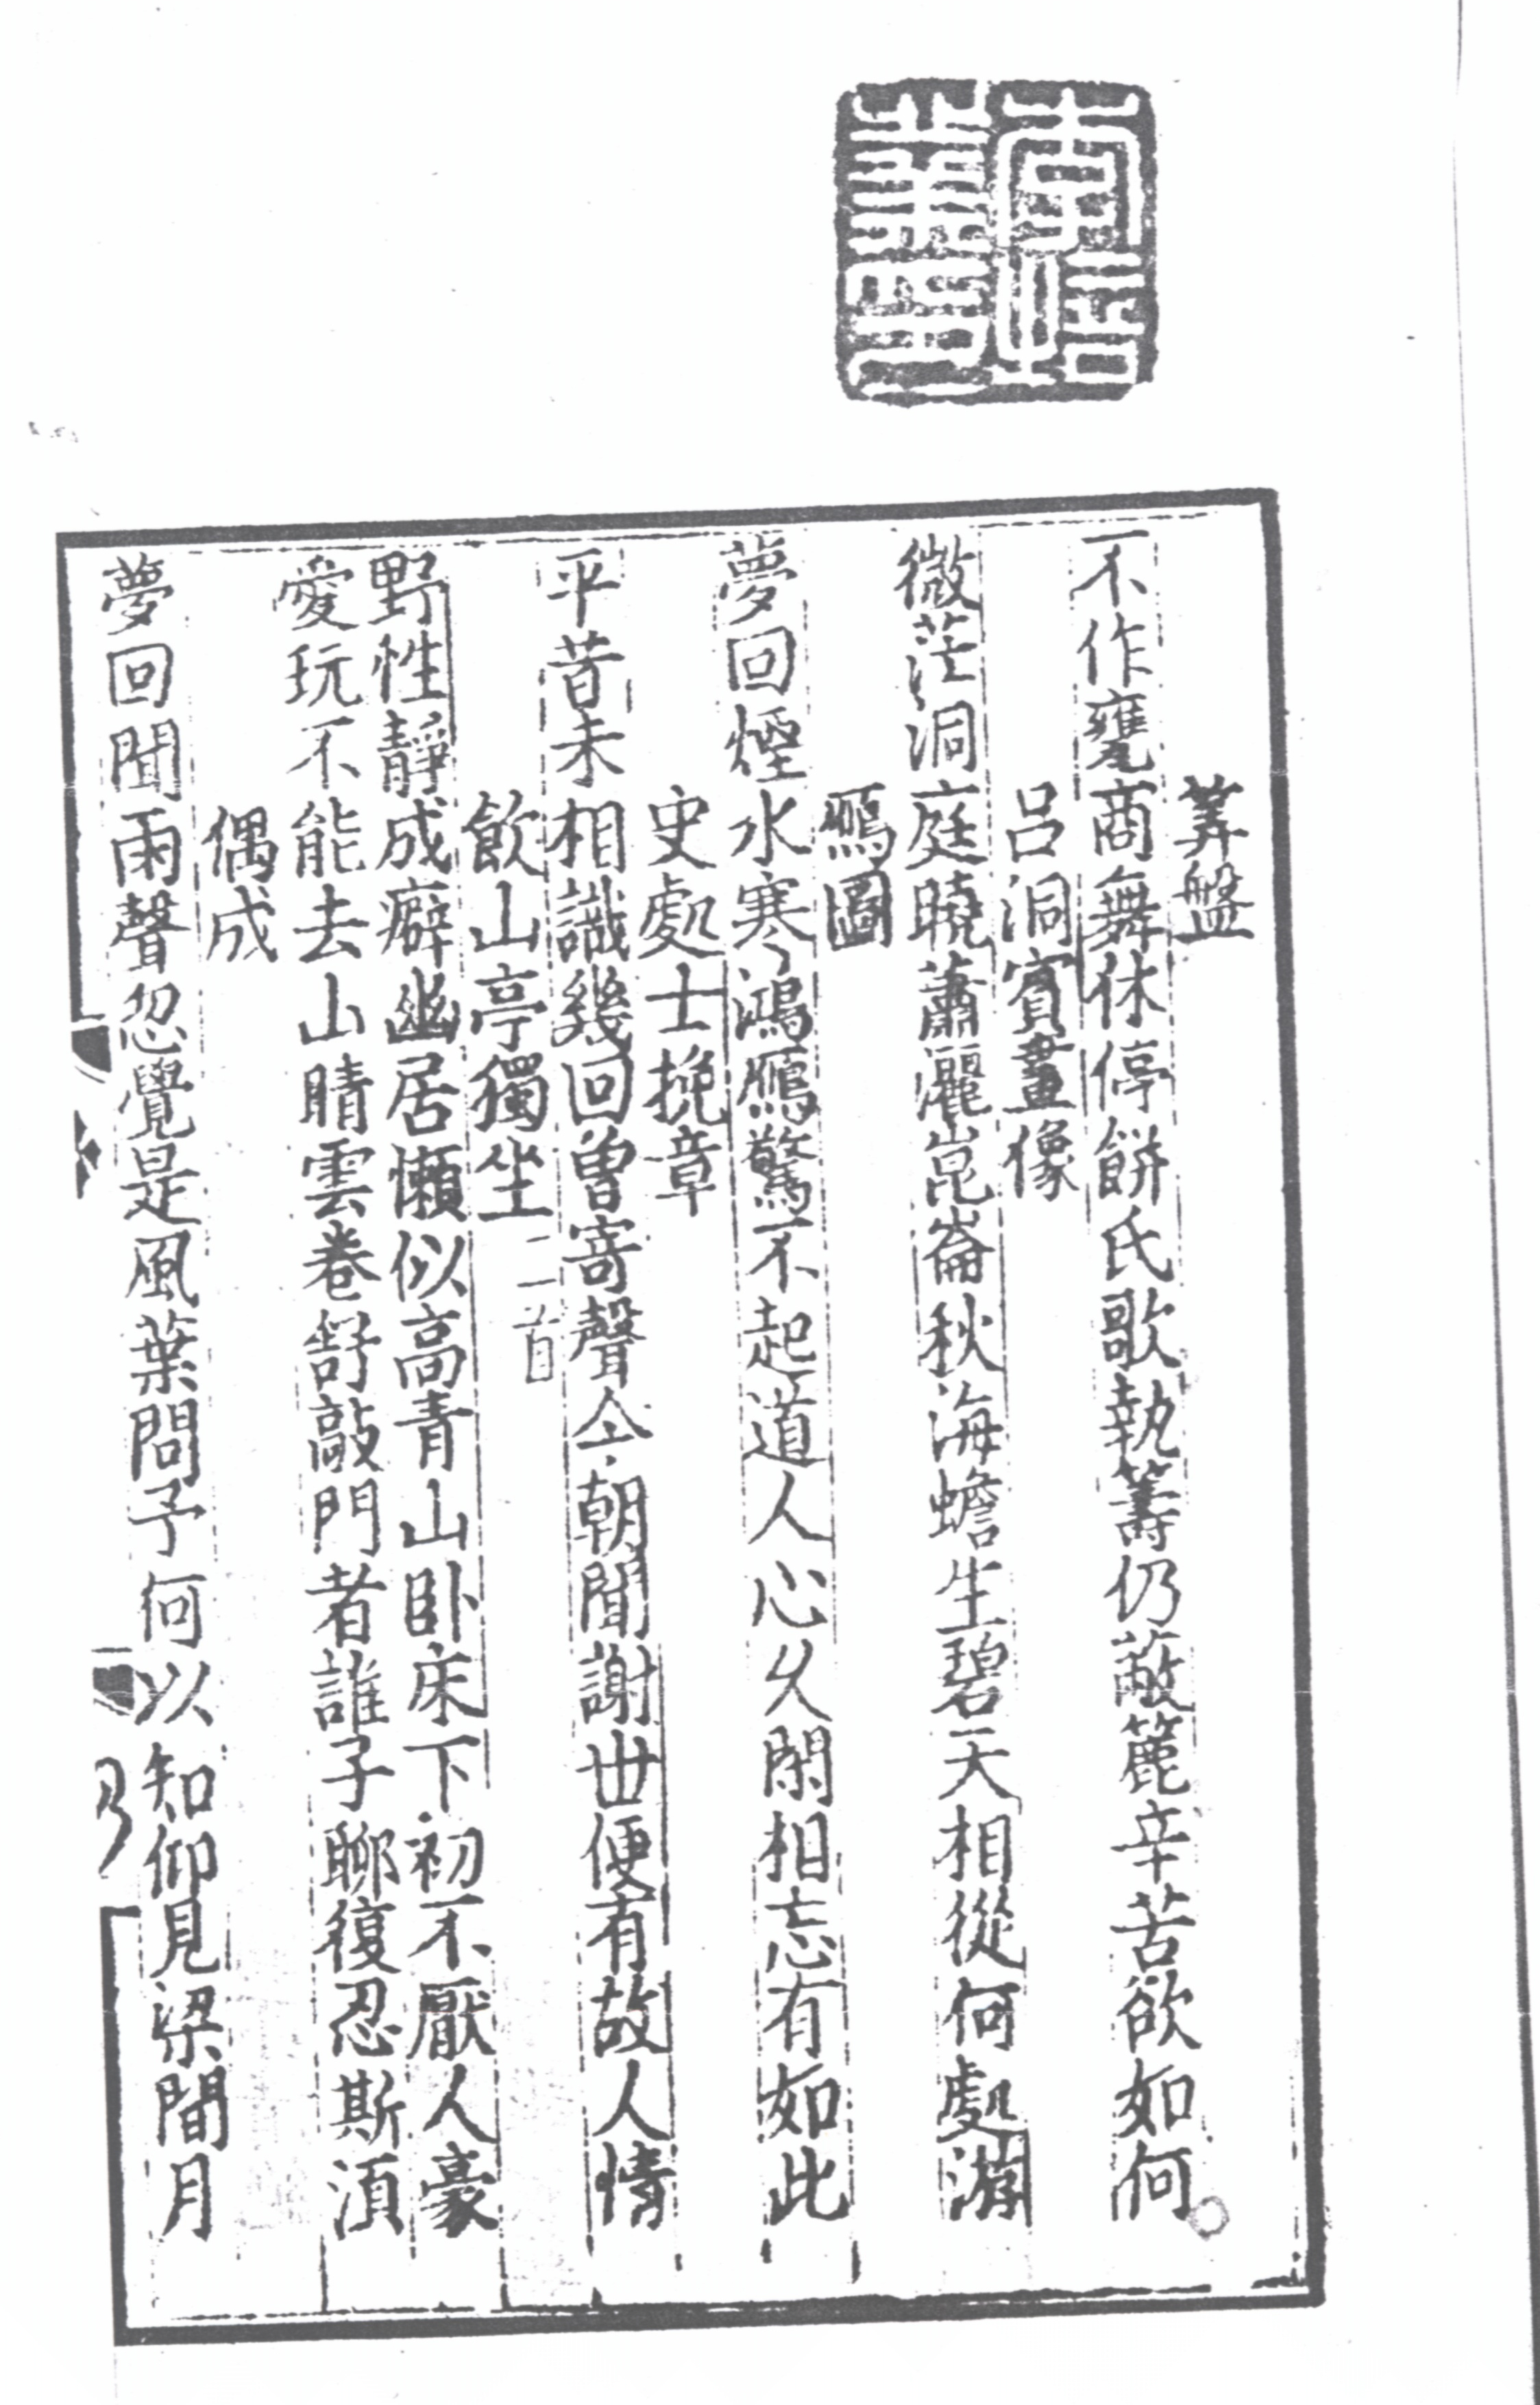 南培
業印
筭盤
不作甕商舞休停餅氏歌執籌仍蔽簏辛苦欲如何
呂洞賓畫像
微茫洞庭曉蕭灑崑崙秋海蟾生碧天相從何處游
鴈圖
夢回煙水寒鴻鴈驚不起道人心久閑相忘有如此
史處士挽章
平昔未相識幾回曾寄聲今朝聞謝世便有故人情
飲山亭獨坐二首
野性靜成癖幽居懶似高青山卧床下初不厭人豪
愛玩不能去山晴雲卷舒敲門者誰子聊復忍斯湏
偶成
夢回聞雨聲忽覺是風葉問予何以知仰見梁間月